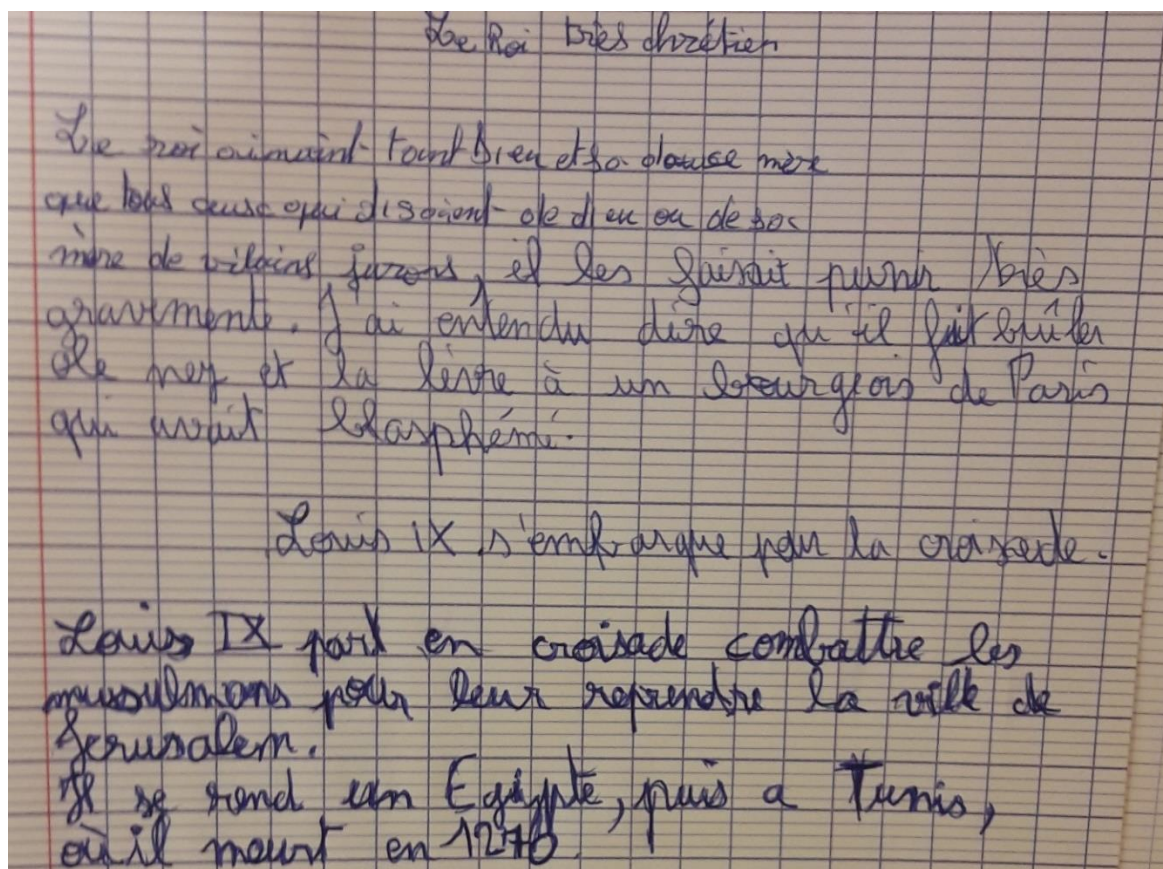 Le Roi très chrétien
Le roi aimaint tant Dieu et sa douce mère
que tous ceuse qui disaient de dieu ou de sa
mère de vilains jurons, il les faisait punir très
gravement. J'ai entendu dire qu'il fait brûler
le nez et la lèvre à un bourgeois de Paris
qui avait blasphémé.
Louis IX s'embarque pour la croisade.
Louis IX part en croisade combattre les
musulmans pour leur reprendre la ville de
Jerusalem.
Il se rend en Egypte, puis a Tunis,
où il meurt en 1270.